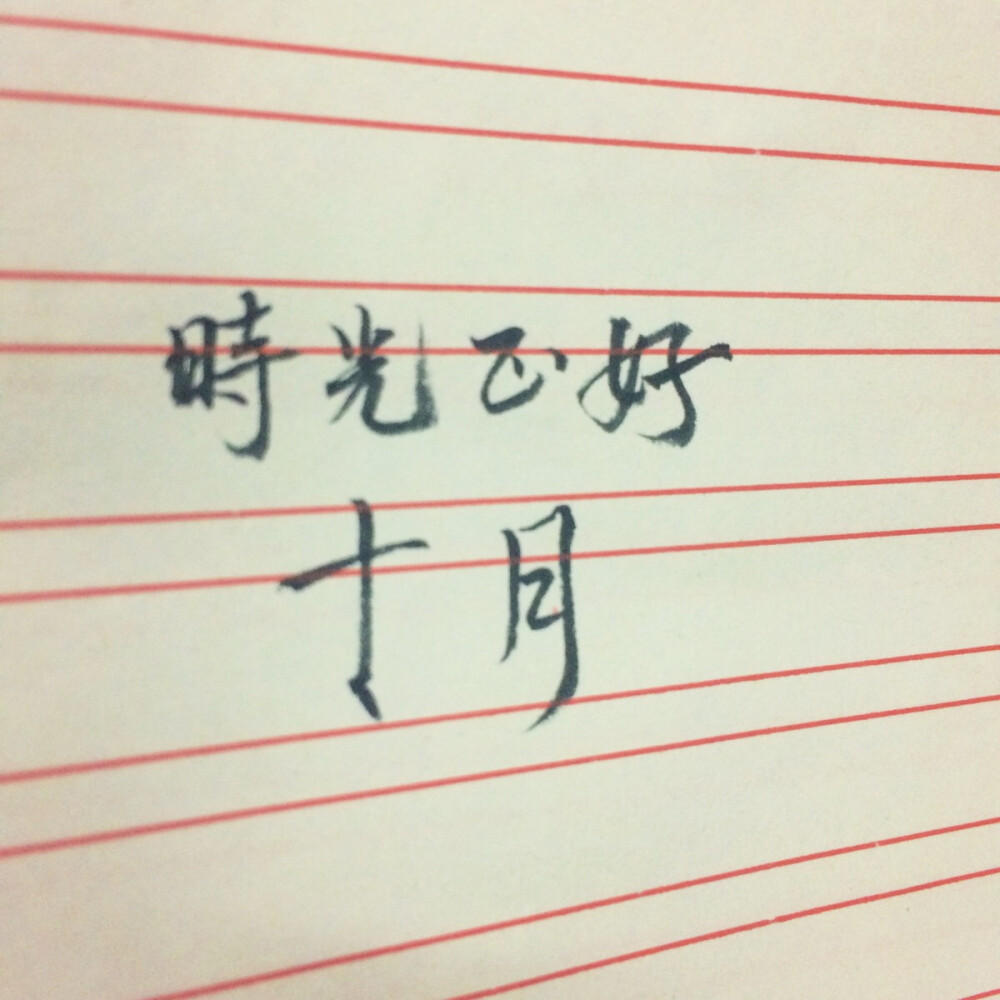 時光正好
十月